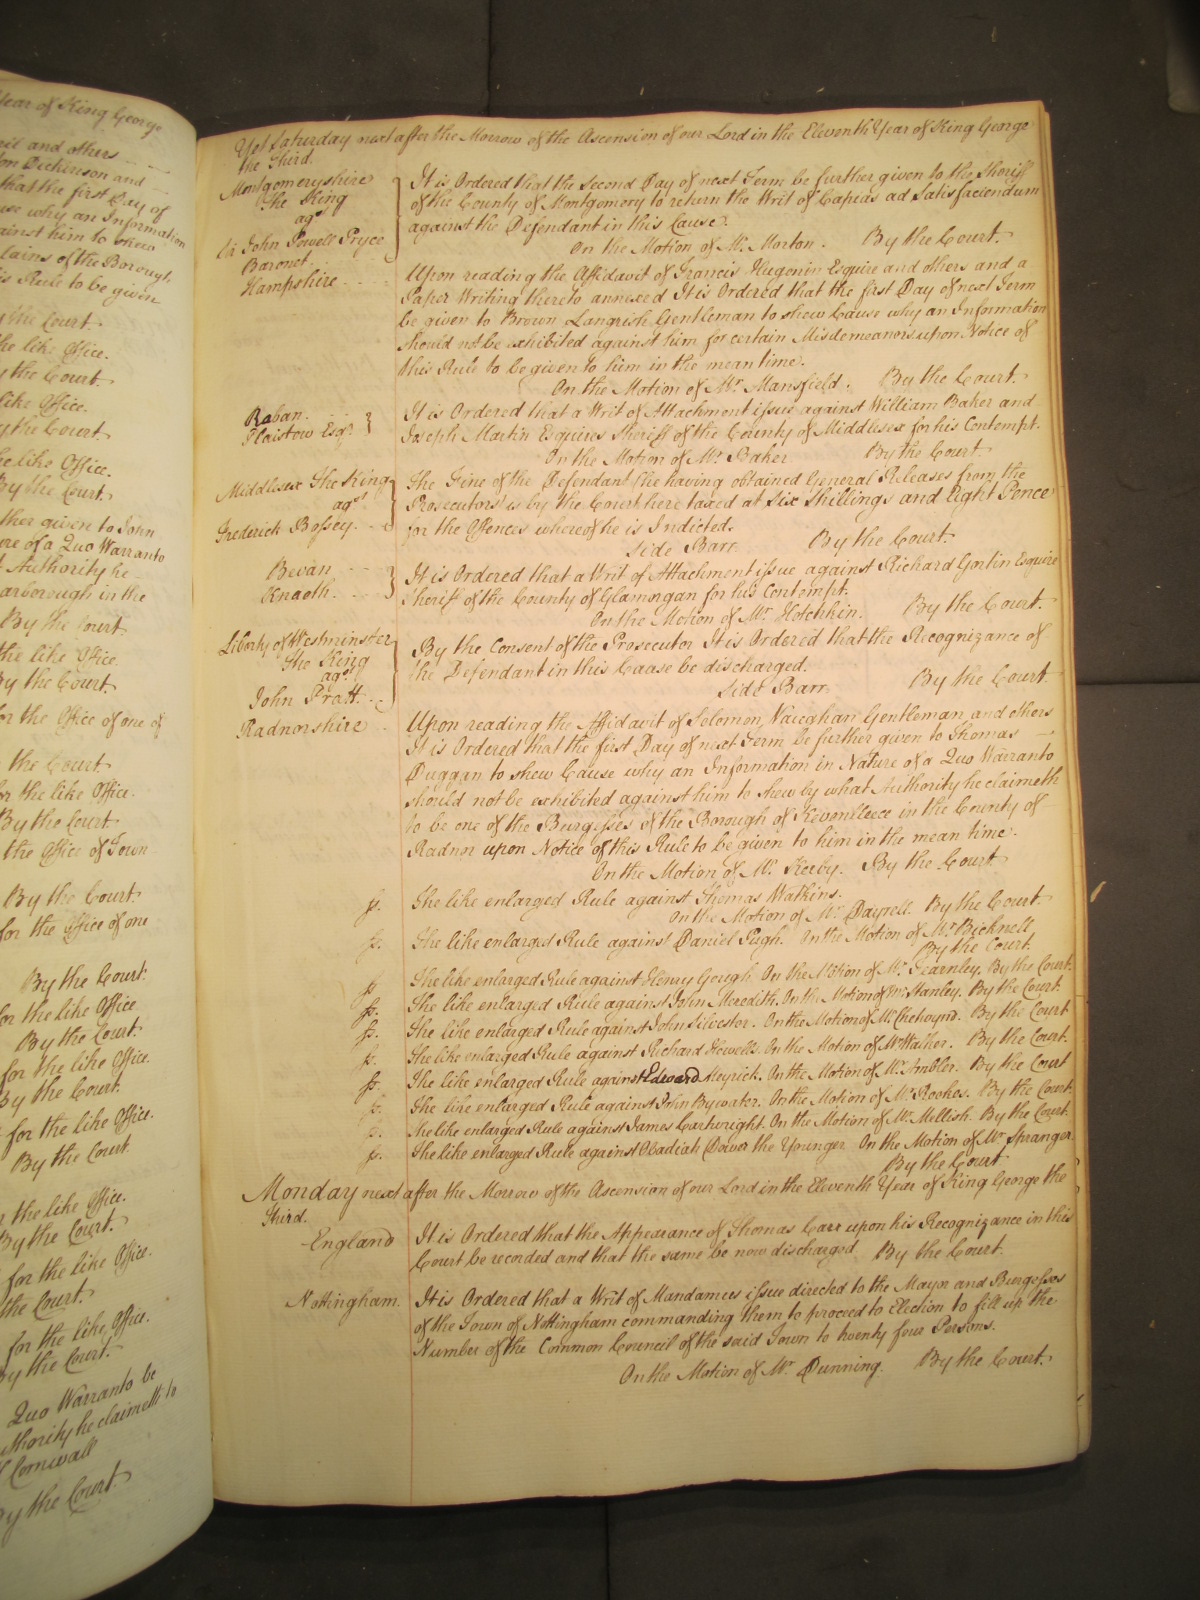 Year of King George
and others
Dickinson and
that the first Day of
use why an Information
against him to shew
the Borough
is Rule to be given
the Court
the like Office.
y the Court
like Office.
y the Court
the like Office.
By the Court
ther given to John
ure of a Quo Warranto
Authority he
arborough in the
By the Court
the like Office.
By the Court
for the Office of one of
the Court
for the like Office.
By the Court
the Office of Town
By the Court
for the Office of one
By the Court
for the like Office
By the Court
for the like Office
By the Court
for the like Office.
By the Court
the like Office.
By the Court
for the like Office.
the Court
for the like Office.
By the Court.
Quo Warranto be
uthority he claimeth to
Cornwall
By the Court
Yet Saturday next after the Morrow of the Ascension of our Lord in the Eleventh Year of King George
the Third.
Montgomeryshire
The King
agt
Sir John Powell Pryce
Baronet
It is Ordered that the Second Day of next Term be further given to the Sheriff
of the County of Montgomery to return the Writ of Capias ad Satisfaciendum
against the Defendant in this Cause.
On the Motion of Mr. Morton. By the Court.
Hampshire
Upon reading the Affidavit of Francis Hugonin Esquire and others and a
Paper Writing thereto annexed It is Ordered that the first Day of next Term
be given to Brown Langrish Gentleman to shew Cause why an Information
should not be exhibited against him for certain Misdemeanors upon Notice of
this Rule to be given to him in the mean time.
On the Motion of Mr. Mansfield. By the Court.
Raban.
Plaistow Esqr.
It is Ordered that a Writ of Attachment issue against William Baker and
Joseph Martin Esquires Sheriff of the County of Middlesex for his Contempt.
On the Motion of Mr. Baker By the Court
Middlesex The King
agst
Frederick Bossey.
The Fine of the Defendant (he having obtained General Releases from the
Prosecutors) is by the Court here taxed at Six Shillings and Eight Pence
for the Offences whereof he is Indicted.
Side Barr By the Court
Bevan
Knaoth.
It is Ordered that a Writ of Attachment issue against Richard Gorlin Esquire
Sheriff of the County of Glamorgan for his Contempt.
On the Motion of Mr. Hotchkin. By the Court.
Liberty of Westminster
The King
agt
John Pratt.
By the Consent of the Prosecutor It is Ordered that the Recognizance of
the Defendant in this Cause be discharged.
Side Barr By the Court
Radnorshire
Upon reading the Affidavit of Solomon Vaughan Gentleman and others
It is Ordered that the first Day of next Term be further given to Thomas
Duggan to shew Cause why an Information in Nature of a Quo Warranto
should not be exhibited against him to shew by what Authority he claimeth
to be one of the Burgesses of the Borough of Kevenlleece in the County of
Radnor upon Notice of this Rule to be given to him in the mean time.
On the Motion of Mr. Kerby. By the Court
ss. The like enlarged Rule against Thomas Watkins.
On the Motion of Mr. Dayrell. By the Court
ss. The like enlarged Rule against Daniel Pugh. On the Motion of Mr. Bicknell
By the Court.
ss. The like enlarged Rule against Henry Gough. On the Motion of Mr. Fearnley. By the Court.
ss. The like enlarged Rule against John Meredith. On the Motion of Mr. Stanley. By the Court.
ss. The like enlarged Rule against John Silvester. On the Motion of Mr. Chetwynd. By the Court
ss. The like enlarged Rule against Richard Howells. On the Motion of Mr. Walker. By the Court.
ss. The like enlarged Rule against Edward Meyrick. On the Motion of Mr. Ambler. By the Court
ss. The like enlarged Rule against John Bywater. On the Motion of Mr. Rookes. By the Court.
ss. The like enlarged Rule against James Cartwright. On the Motion of Mr. Mellish. By the Court.
ss. The like enlarged Rule against Obadiah Dower the Younger On the Motion of Mr. Spranger.
By the Court
Monday next after the Morrow of the Ascension of our Lord in the Eleventh Year of King George the
Third.
England
It is Ordered that the Appearance of Thomas Carr upon his Recognizance in this
Court be recorded and that the same be now discharged. By the Court.
Nottingham.
It is Ordered that a Writ of Mandamus issue directed to the Mayor and Burgesses
of the Town of Nottingham commanding them to proceed to Election to fill up the
Number of the Common Council of the said Town to twenty four Persons.
On the Motion of Mr. Dunning. By the Court.